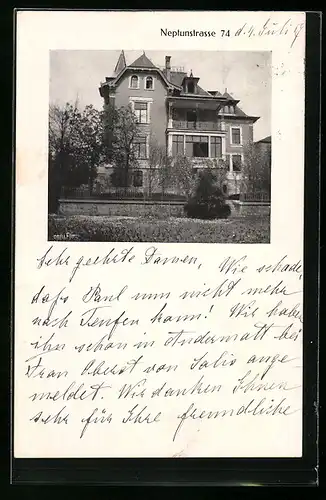 Neptunstrasse 74 d. 4. Juli
Sehr geehrte Damen, Wie schade,
dass Paul nun nicht mehr
nach Teufen kann! Wir haben
ihn schon in Andermatt bei
Frau Oberst von Salis ange-
meldet. Wir danken Ihnen
sehr für Ihre freundliche